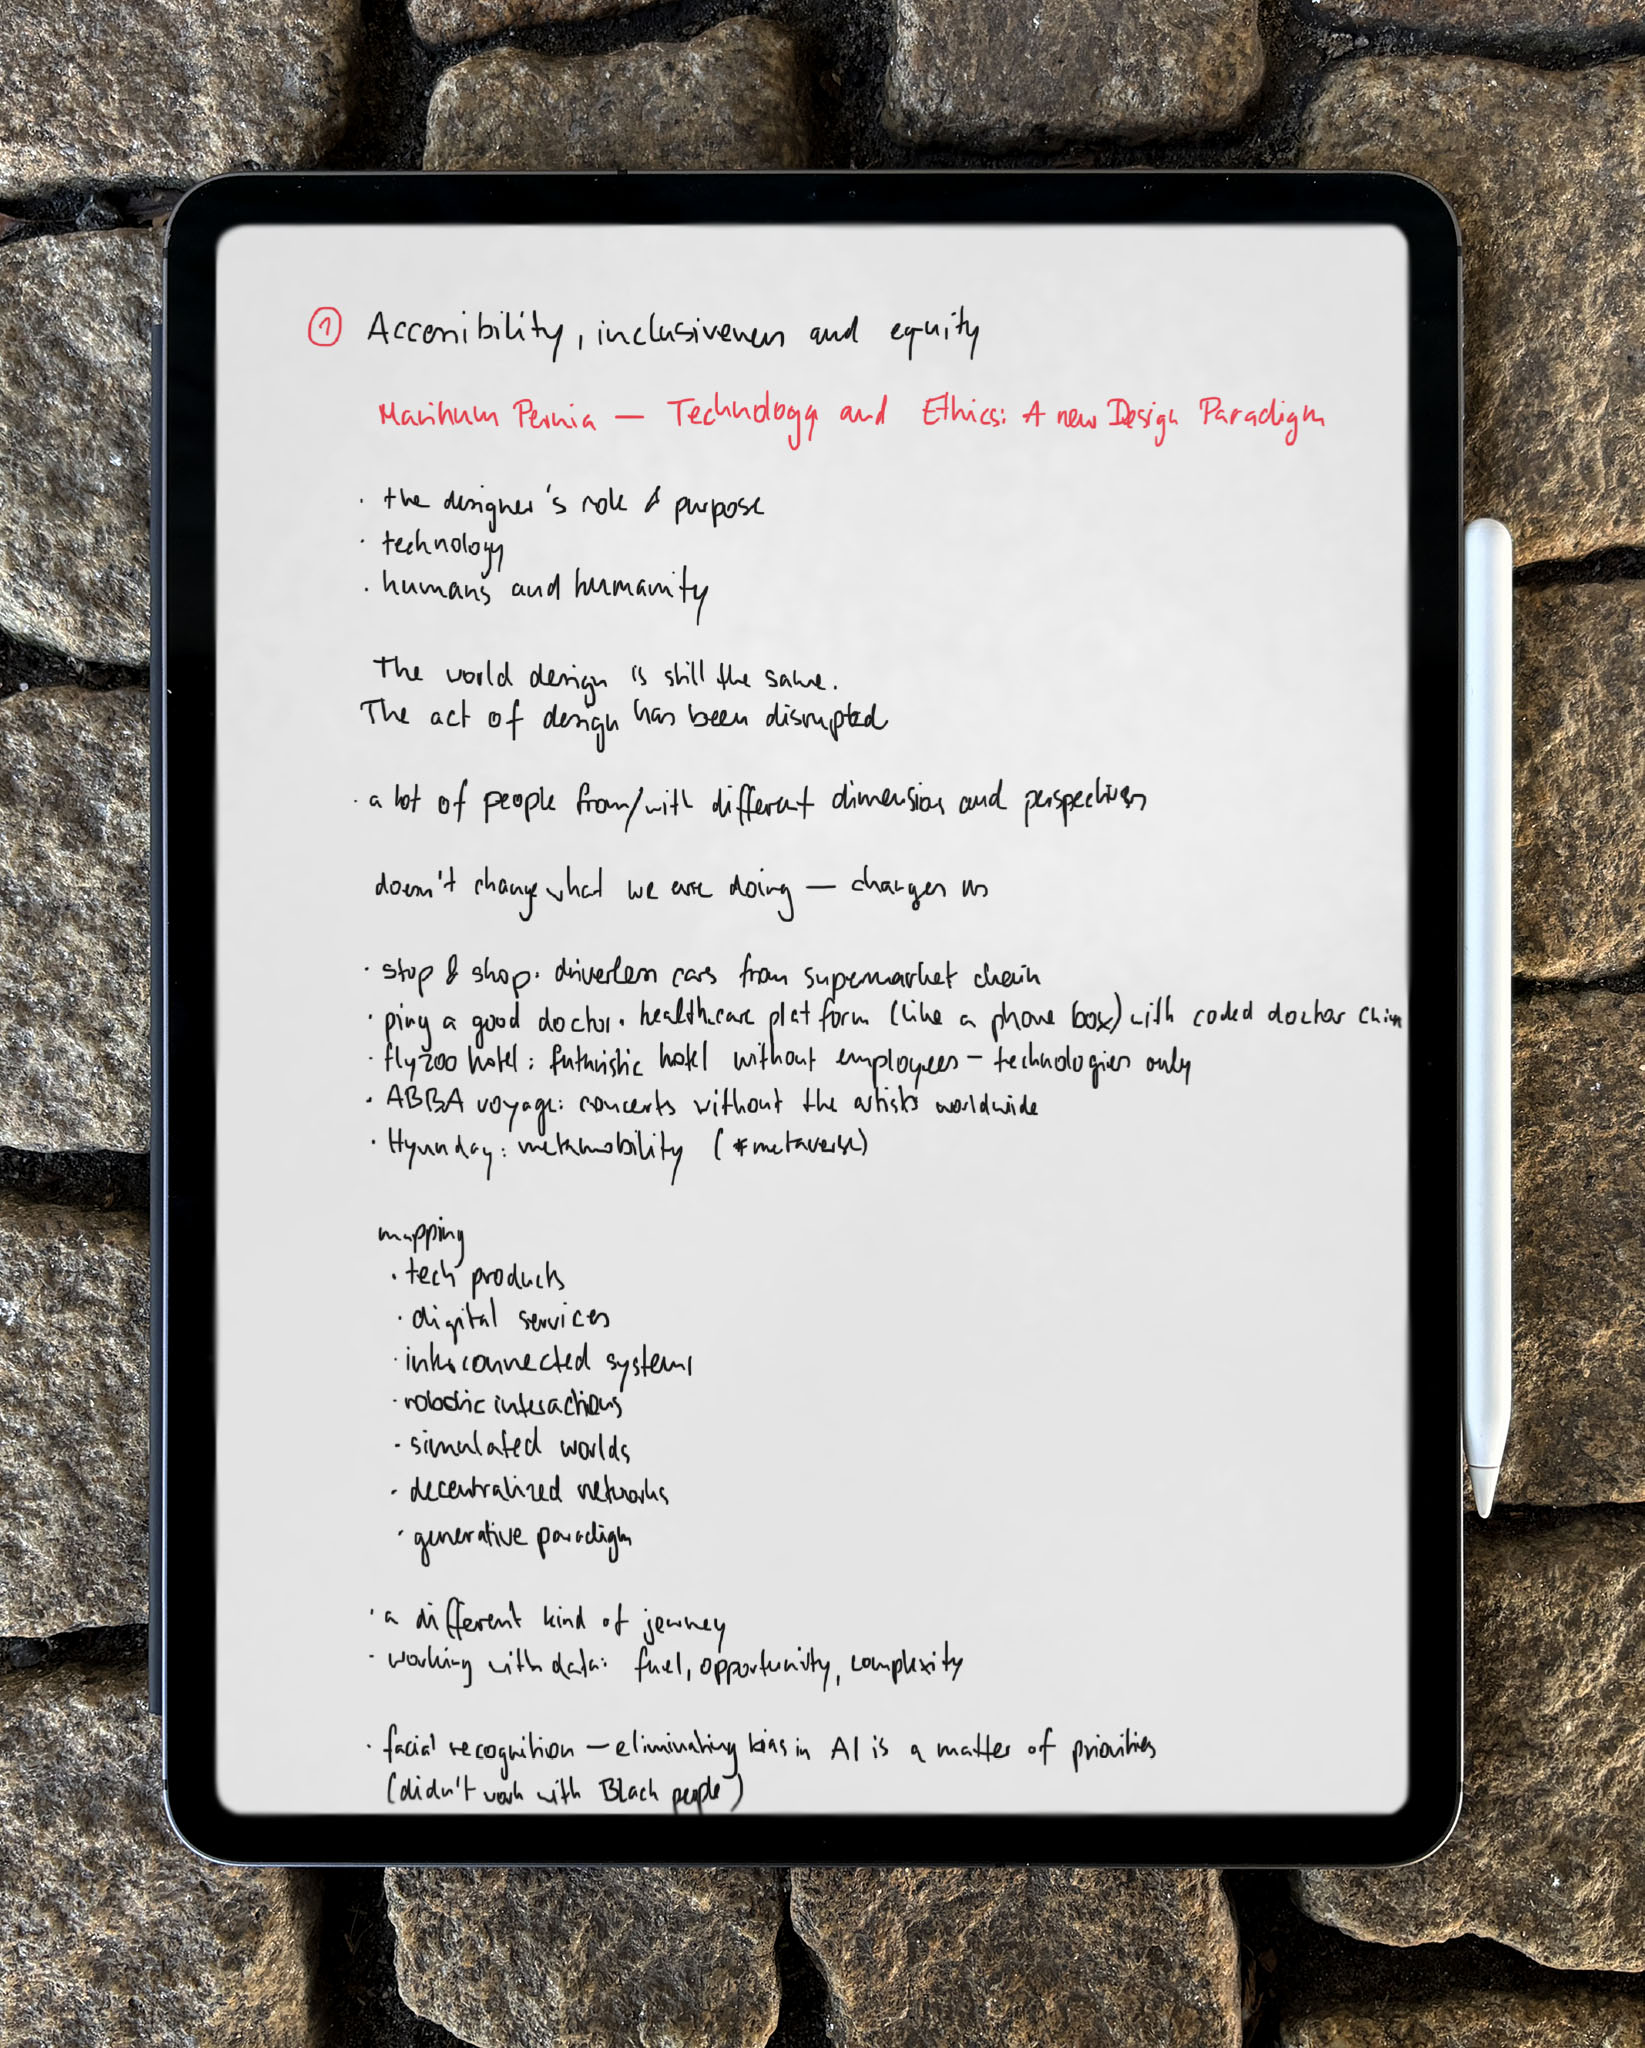 ① Accessibility, inclusiveness and equity
Marihum Pernia — Technology and Ethics: A new Design Paradigm
· the designer's role & purpose
· technology
· humans and humanity
The world design is still the same.
The act of design has been disrupted
· a lot of people from/with different dimension and perspectives
doesn't change what we are doing — changes us
· stop & shop. driverless cars from supermarket chain
· ping a good doctor. healthcare platform (like a phone box) with coded doctor
· flyzoo hotel: futuristic hotel without employees – technologies only
· ABBA voyage: concerts without the artists worldwide
· Hyunday: metamobility (*metaverse)
mapping
· tech products
· digital services
· interconnected systems
· robotic interactions
· simulated worlds
· decentralized networks
· generative paradigm
· a different kind of journey
· working with data: fuel, opportunity, complexity
· facial recognition – eliminating bias in AI is a matter of priorities
(didn't work with Black people)